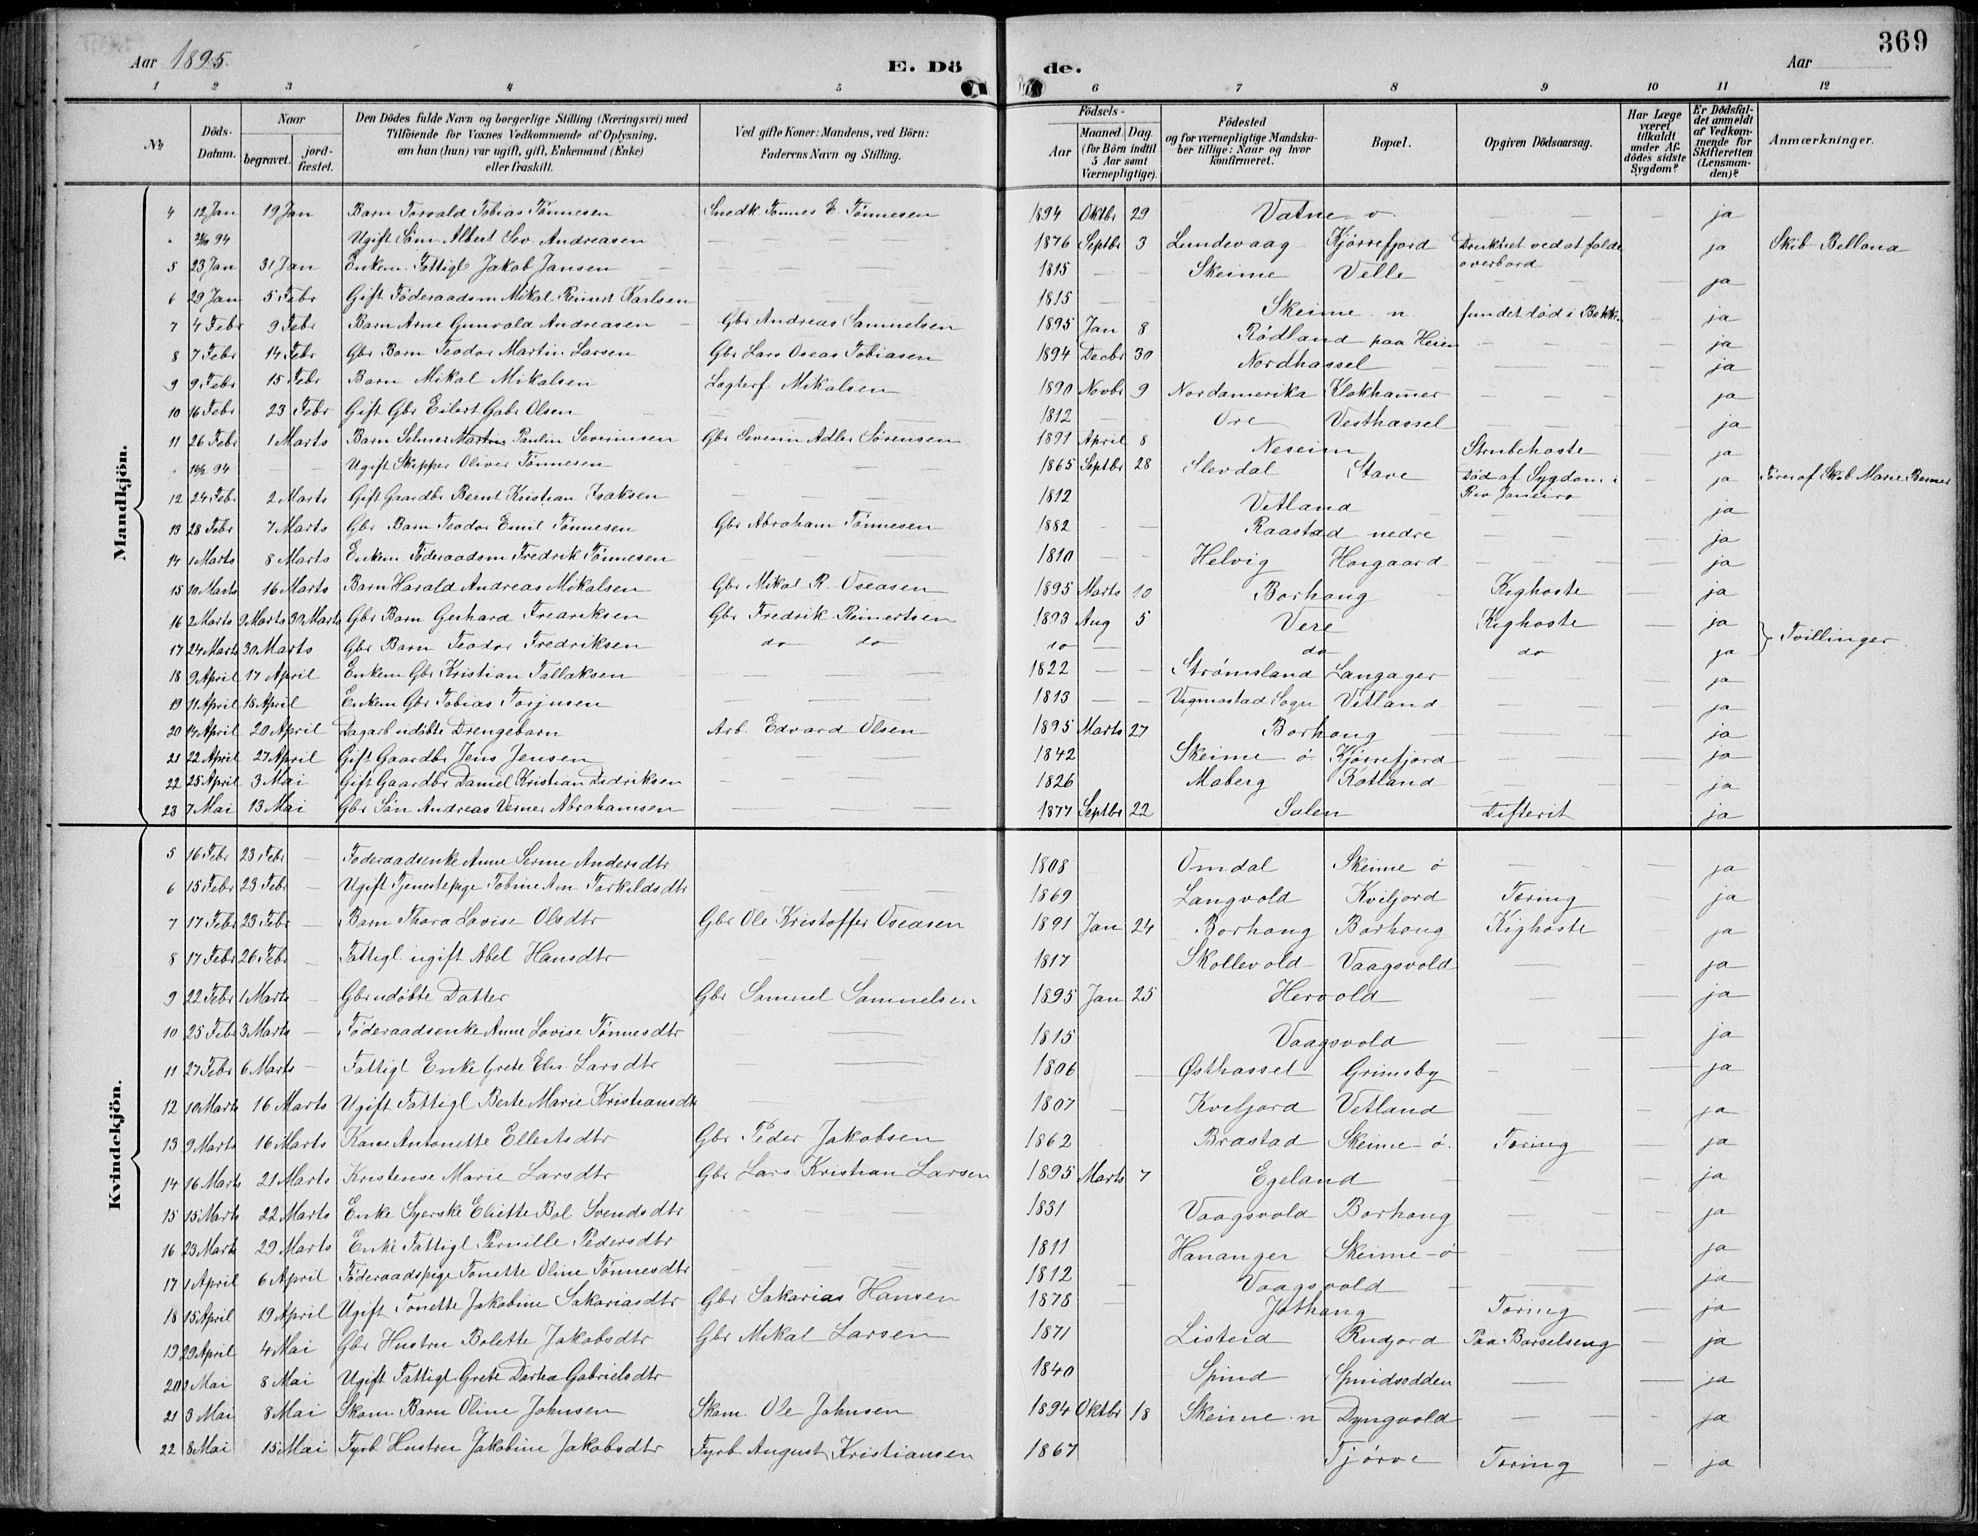 369
Aar 1895.
E. Dö de.
Aar
1 2 3 4 5 6 7 8 9 10 11 12
No
Döds-Datum.
Naar begravet. jordfæstet.
Den Dödes fulde Navn og borgerlige Stilling (Næringsvei) med Tilföiende for Voxnes Vedkommende af Oplysning, om han (hun) var ugift, gift, Enkemand (Enke) eller fraskilt.
Ved gifte Koner: Mandens, ved Börn: Faderens Navn og Stilling.
Födsels- Aar Maaned. Dag. (for Börn indtil 5 Aar samt Værnepligtige).
Födested og for værnepligtige Mandskaber tillige: Naar og hvor konfirmeret.
Bopæl.
Opgiven Dödsaarsag.
Har Læge været tilkaldt under Afdödes sidste Sygdom?
Er Dödsfaldet anmeldt af Vedkommende for Skifteretten (Lensmanden)?
Anmærkninger.
Mandkjön.
4 12 Jan 19 Jan Barn Torvald Tobias Tönnesen Snedk. Tönnes E Tönnesen 1894 Oktbr 29 Vatne v. — — ja
Ugift Sön Albert Sev. Andreasen — — 1876 Septbr 3 Lundevaag Kjörrefjord Druknet ved at falde overbord ja Skib Bellona
5 23 Jan 31 Jan Enkem. Fattigl Jakob Jansen — — 1815 — — Skeime Velle ja
6 29 Jan 5 Febr Gift Föderaadsm Mikal Reinert Karlsen 1815 — Skeime n fundet död i Bækk. ja
7 4 Febr 9 Febr Barn Arne Gunvald Andreasen Gbr Andreas Samuelsen 1895 Jan 8 Rödland paa Heien — — ja
8 7 Febr 14 Febr Gbr Barn Teodor Martin Larsen Gbr Lars Oseas Tobiasen 1894 Decbr 30 Nordhassel — — ja
9 9 Febr 15 Febr Barn Mikal Mikalsen Mikalsen 1890 Novbr 9 Nordamerika Klokhammer — — ja
10 16 Febr 23 Febr Gift Gbr Eilert Gabr Olsen — — 1812 — Ore Vesthassel — — ja
11 26 Febr 1 Marts Barn Selmer Martin Paulin Severinsen Gbr Severin Adler Sörensen 1891 April 8 Neseim Strubehoste ja
Ugift Skipper Oliver Tönnesen — — 1865 Septbr 28 Slevdal Stave Död af Sygdom i Rio Janeiro — ja Förer af Skib Marie
12 24 Febr 2 Marts Gift Gaardbr Bernt Kristian Isaksen — — 1812 Vetland — ja
13 28 Febr 7 Marts Gbr Barn Teodor Emil Tönnesen Gbr Abraham Tönnesen 1882 — — Raastad nedre — — ja
14 1 Marts 8 Marts Enkem Föderaadsm Fredrik Tönnesen 1810 — — Helvig Horgaard — — ja
15 10 Marts 16 Marts Barn Harald Andreas Mikalsen Gbr Mikal R. Oseasen 1895 Marts 10 Borhaug Kighoste — ja
16 2 Marts 9 Marts 30 Marts Gbr Barn Gerhard Fredriksen Gbr Fredrik Reinertsen 1893 Aug 5 Vere Kighoste — ja
17 24 Marts 30 Marts Gbr Barn Teodor Fredriksen do do do — do do — ja } Tvillinger
18 9 April 17 April Enkem Gbr Kristian Tallaksen — — 1822 — — Strömsland Langager — — ja
19 11 April 18 April Enkem Gbr Tobias Torjusen — — 1813 — — Vigmostad Sogn Vetland — — ja
20 14 April 20 April Dagarb udöbte Drengebarn Arb. Edvard Olsen 1895 Marts 27 Borhaug — — ja
21 22 April 27 April Gift Gaardbr Jens Jensen — — 1842 Skeime ö Kjörrefjord — — ja
22 25 April 3 Mai Gift Gaardbr Daniel Kristian Didriksen — — 1826 Maberg Kotland — — ja
23 7 Mai 13 Mai Gbr Sön Andreas Verner Abrahamsen — — 1877 Septbr 22 Salen Difterit — ja
Kvindekjön.
5 16 Febr 23 Febr — Föderaadsenke Anne Serine Andersdtr 1808 Omdal Skeime ö — — ja
6 15 Febr 23 Febr — Ugift Tjenestepige Tobine Torkildsdtr — — 1869 Langvold Kviljord Tæring ja
7 17 Febr 23 Febr — Barn Thora Lovise Olsdtr Gbr Ole Kristoffer Oseasen 1891 Jan 24 Borhaug Borhaug Kighoste — ja
8 17 Febr 26 Febr — Fattigl ugift Abel Hansdtr — 1817 Skollevold Vaagsvold — — ja
9 22 Febr 1 Marts — Gbr udöbte Datter Gbr Samuel Samuelsen 1895 Jan 25 Hervold — ja
10 25 Febr 3 Marts — Föderaadsenke Anne Lovise Tönnesdtr — — 1815 Vaagsvold — — ja
11 27 Febr 6 Marts — Fattigl Enke Grete Elis Larsdtr — — 1806 — Östhassel Grimsby — — ja
12 10 Marts 16 Marts Ugift Fattigl Berte Marie Kristiansdtr — — 1807 — Kviljord Vetland — — ja
13 9 Marts 16 Marts Kone Antonette Ellertsdtr Gbr Peder Jakobsen 1862 Brastad Skeime ö. Tæring — ja
14 16 Marts 21 Marts Kristense Marie Larsdtr Gbr Lars Kristian Larsen 1895 Marts 7 Egeland — — ja
15 15 Marts 22 Marts Enke Syerske Eliette Bol Svendsdtr — — 1831 Vaagsvold Borhaug — — ja
16 23 Marts 29 Marts Enke Fattigl Pernille Pedersdtr 1811 Hananger Skeime ö — — ja
17 1 April 6 April Föderaadspige Tonette Oline Tönnesdtr — — 1812 — Vaagsvold — — ja
18 15 April 19 April Ugift Tonette Jakobine Sakariasdtr Gbr Sakarias Hansen 1878 — Jöthaug Tæring — ja
19 29 April 4 Mai Gbr Hustru Bolette Jakobsdtr Gbr Mikal Larsen 1871 Listeid Rudjord Paa Barselseng — ja
20 1 Mai 8 Mai Ugift Fattigl Grete Dortea Gabrielsdtr 1840 Spind Spindsodden — — ja
21 3 Mai 8 Mai Skom Barn Oline Johnsen Skom. Ole Johnsen 1894 Oktbr 18 Skeime n Dyngvold — — ja
22 8 Mai 15 Mai Fyrb Hustru Jakobine Jakobsdtr Fyrb August Kristiansen 1867 Tjörve Tæring — ja